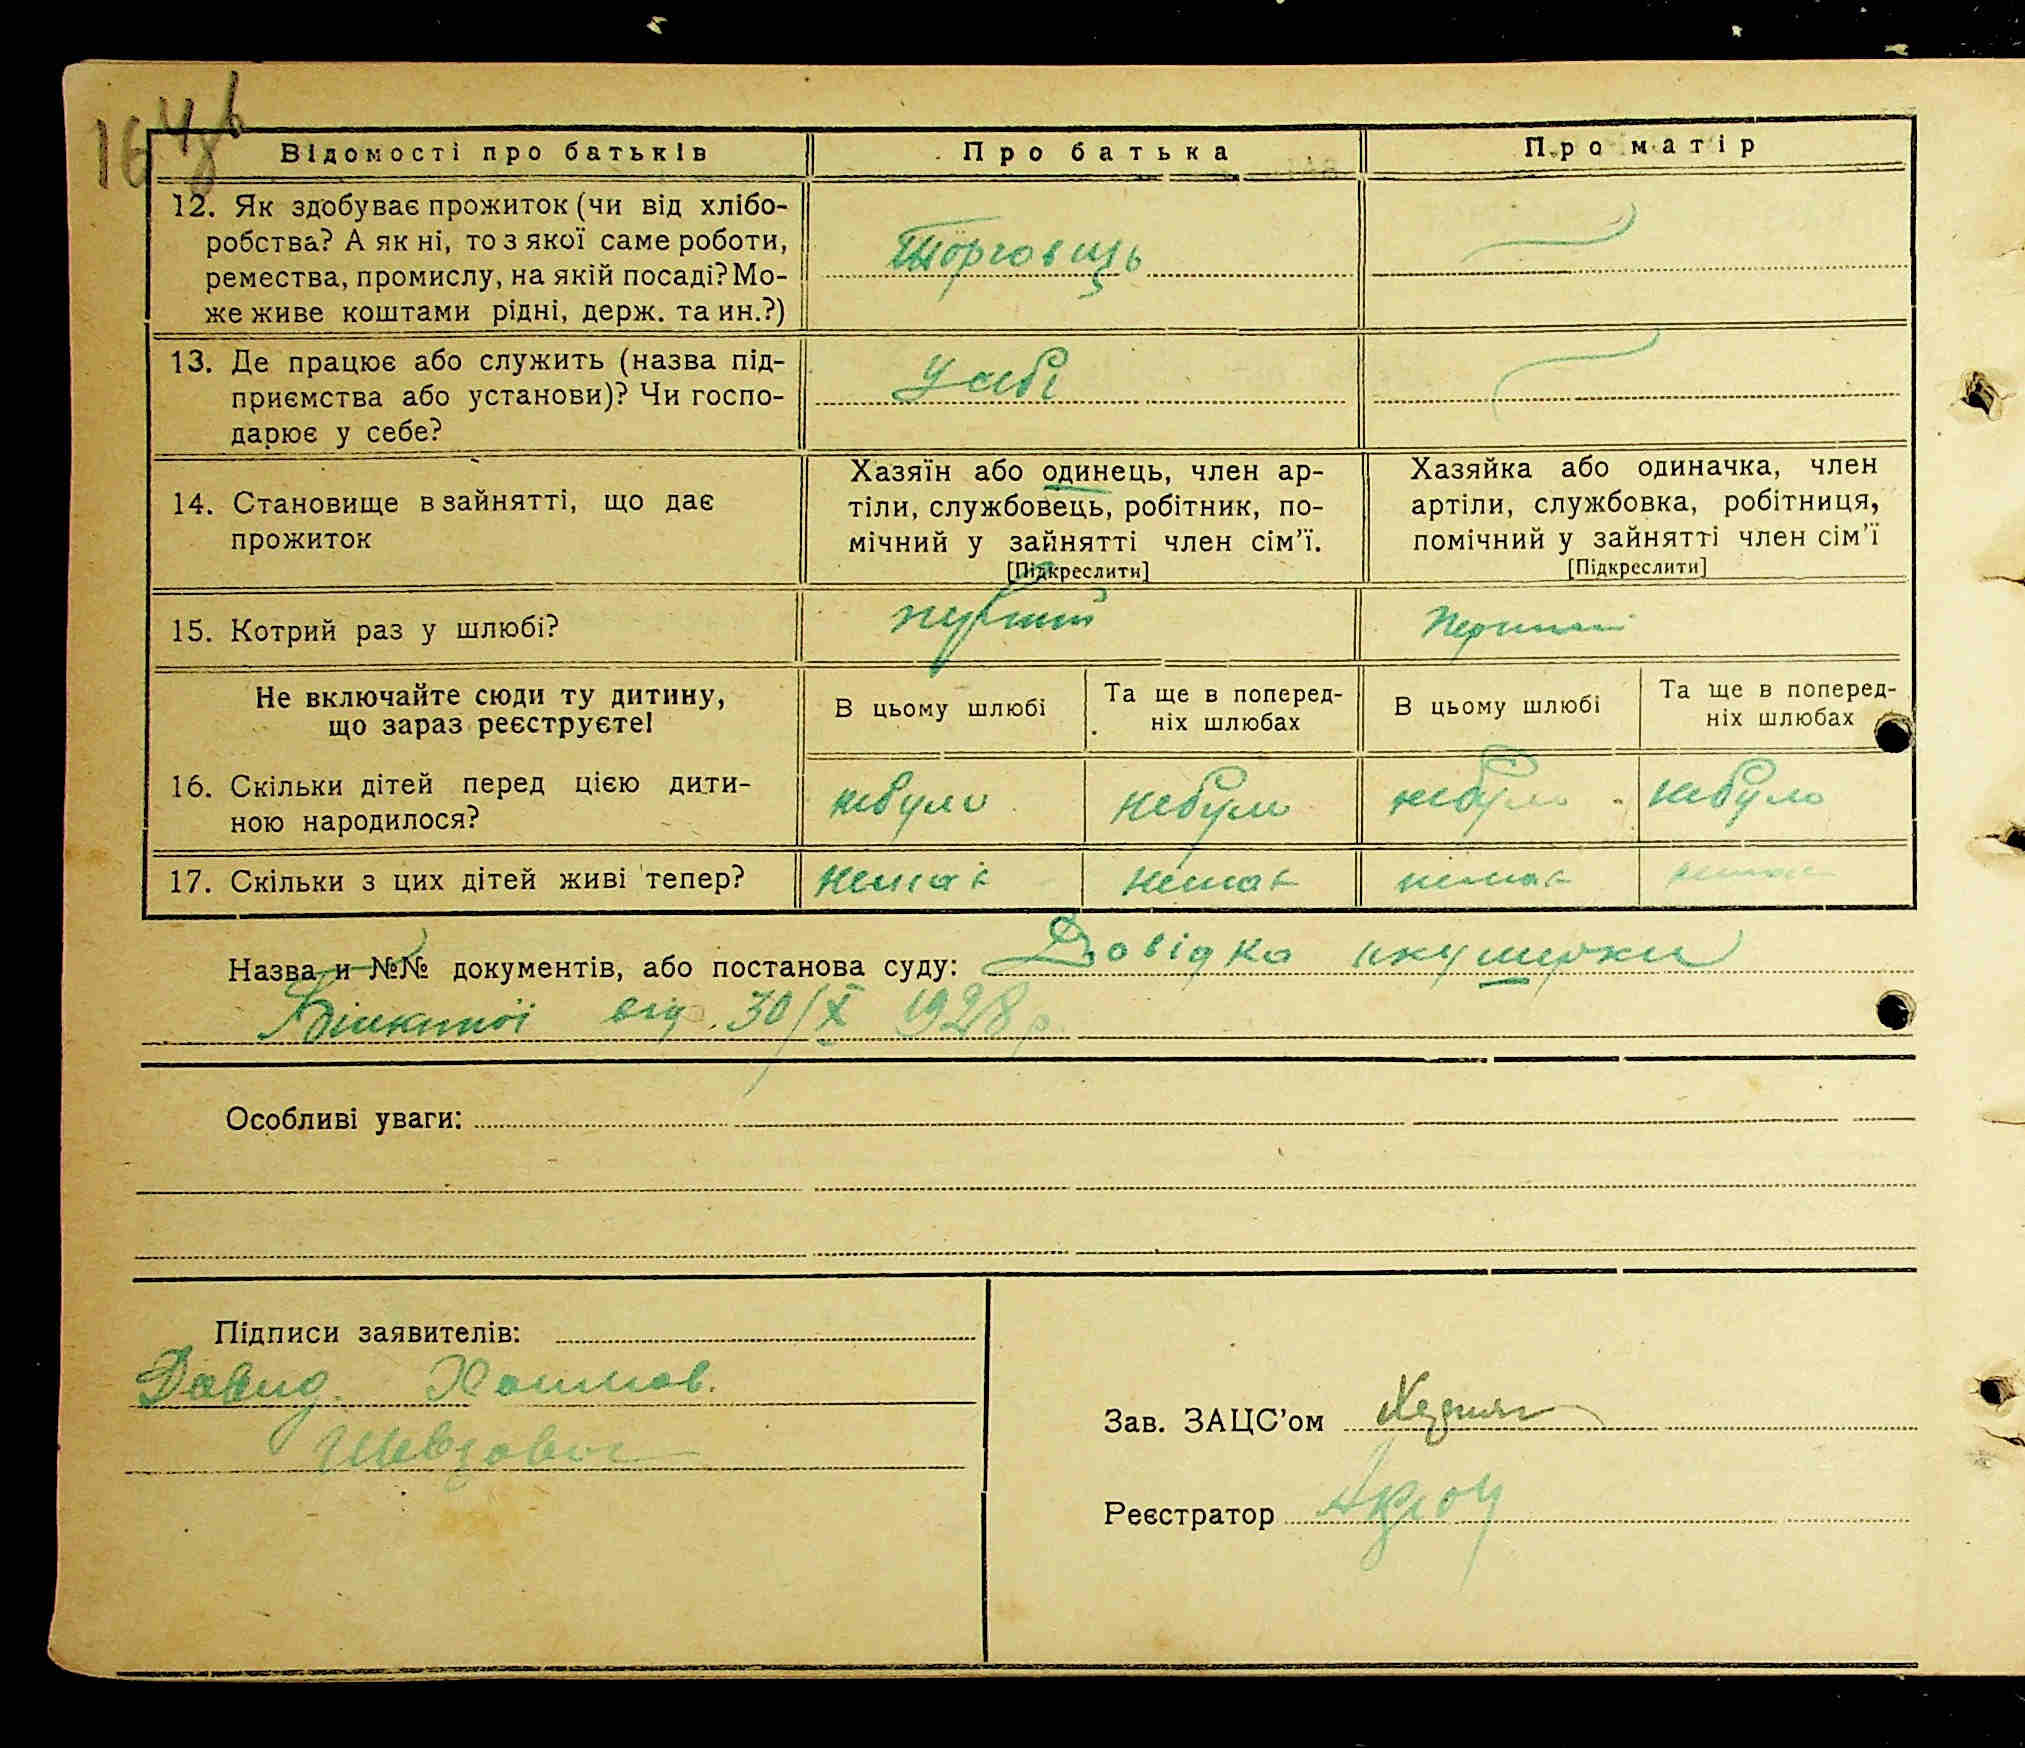 164зв
Відомості про батьків
Про батька
Про матір
12. Як здобуває прожиток (чи від хлібо-
робства? А як ні, то з якої саме роботи,
ремества, промислу, на якій посаді? Мо-
же живе коштами рідні, держ. та ин.?)
Торговиць
13. Де працює або служить (назва під-
приємства або установи)? Чи госпо-
дарює у себе?
у себі
14. Становище в зайнятті, що дає
прожиток
Хазяїн або одинець, член ар-
тіли, службовець, робітник, по-
мічний у зайнятті член сім’ї.
[Підкреслити]
Хазяйка або одиначка, член
артіли, службовка, робітниця,
помічний у зайнятті член сім’ї
[Підкреслити]
15. Котрий раз у шлюбі?
перший
перший
Не включайте сюди ту дитину,
що зараз реєструєте!
В цьому шлюбі
Та ще в поперед-
ніх шлюбах
В цьому шлюбі
Та ще в поперед-
ніх шлюбах
16. Скільки дітей перед цією дити-
ною народилося?
небуло
небуло
небуло
небуло
17. Скільки з цих дітей живі тепер?
немає
немає
немає
немає
Назва и №№ документів, або постанова суду: Довідка акушерки
від 30/X 1928 р.
Особливі уваги:
Підписи заявителів:
Давид Хаимов.
Шевзович
Зав. ЗАЦС’ом
Реєстратор